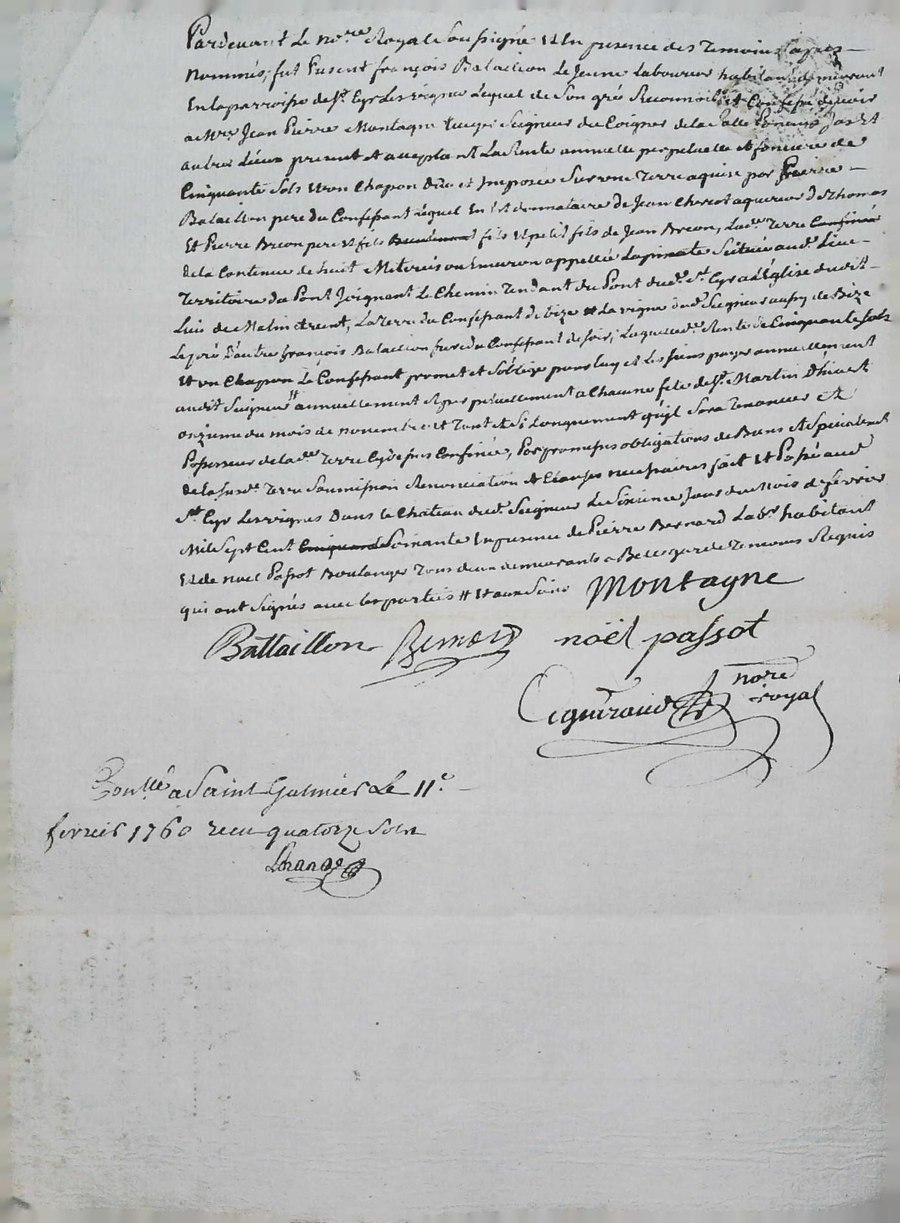 Pardevant Le no.re Royal Soussigné Et En presence des Temoins apres
nommés, fut Present françois Bataillon Le Jeune Laboureur habitant demeurant
En la parroisse de S.t Cyr Les vignes Lequel de Son gré Reconnoit et Confesse devoir
a M.re Jean Pierre Montagne Seigneur du Poigner de la Salle
autres Lieux present et acceptant La Rente annuelle perpetuelle et fonciere de
Cinquante Sols Et un Chapon Due et Imposée Sur une Terre aquise par Pierre
Bataillon pere du Confessant Lequel En donnataire de Jean Cherot aquereur de Thomas
Et Pierre Breon pere et fils fils et petit fils de Jean Breon, Lad.e Terre Confinée
de la Contenue de huit Meterés ou Environ appellée La Scituée aud. Lieu
Territoire du Pont Joignant Le Chemin Tendant du Pont dud. S.t Cyr a L'Eglise dudit
Luis de Matin et vent, La Terre du Confessant de bize La vigne dud. Seigneur aussy de Bize
Le pré d'autre françois Bataillon frere du Confessant de soir, Laquelle d. Rente de Cinquante Sols
Et un Chapon Le Confessant promet et S'oblige pour luy et Les Siens payer annuellement
audit Seigneur annuellement et perpetuellement a Chacune fete de S.t Martin D'hiver
onzieme du mois de novembre et Tant et Si Longuement qu'il Sera Tenancier et
Possesseur de la d.e Terre Cy dessus Confinée, Par promesses obligations de Biens Et Specialement
de la Susd.e Terre Soumission Renonciation et Clauses necessaires fait Et Passé aud.
S.t Cyr Les vignes Dans Le Château dud. Seigneur Le Sixieme Jour du Mois de fevrier
Mil Sept Cent Cinquante Soixante En presence de Pierre Bernard Lab.r habitant
Et de noel Passot Boulanger Tous deux demeurants a Bellegarde Temoins Requis
qui ont Signés avec Les parties
Montagne
Battaillon noël passot
no.re
royal
Con.lé a Saint Galmier Le 11.e
fevrier 1760 recu quatorze Sols